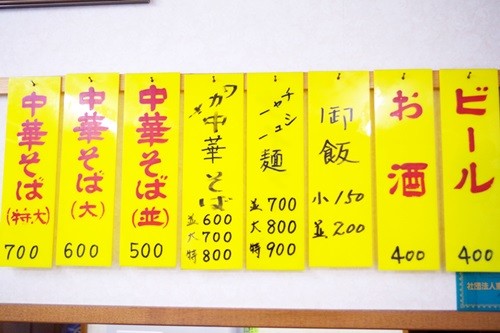 ビール
400
お酒
400
御飯
小 150
並 200
チャーシュー麺
並 700
大 800
特 900
中華そば
並 600
大 700
特 800
中華そば
(並)
500
中華そば
(大)
600
中華そば
(特大)
700
社団法人